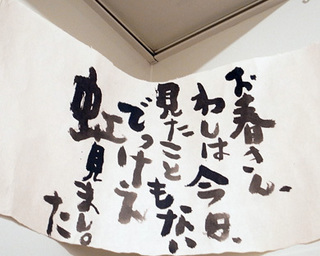 お春さん、
わしは今日、
見たこともない
でっけえ
虹見ました。